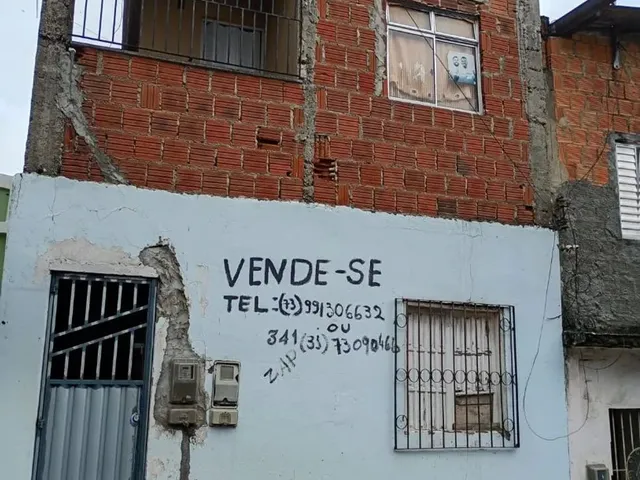 VENDE-SE
TEL:(73)991306632
OU
341(35)73090466
ZAP